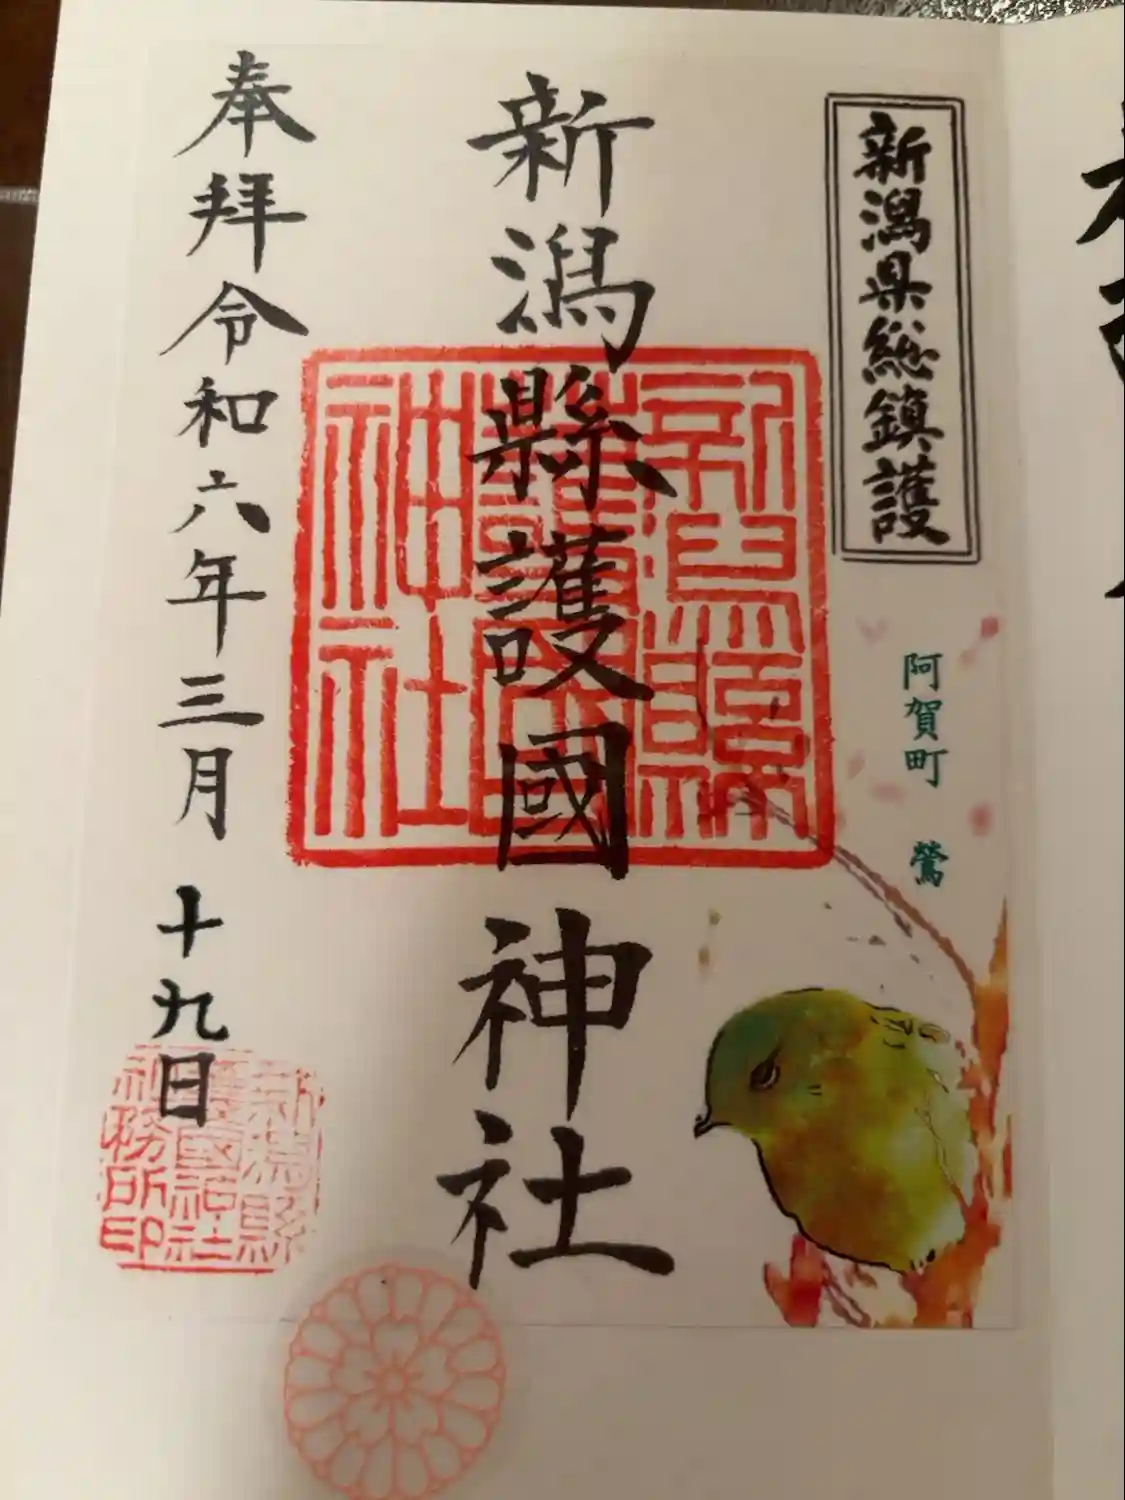 新潟県総鎮護
阿賀町 鶯
新潟縣護國神社
新潟縣
護國
神社
奉拝令和六年三月十九日
新潟縣
護國神社
社務所印